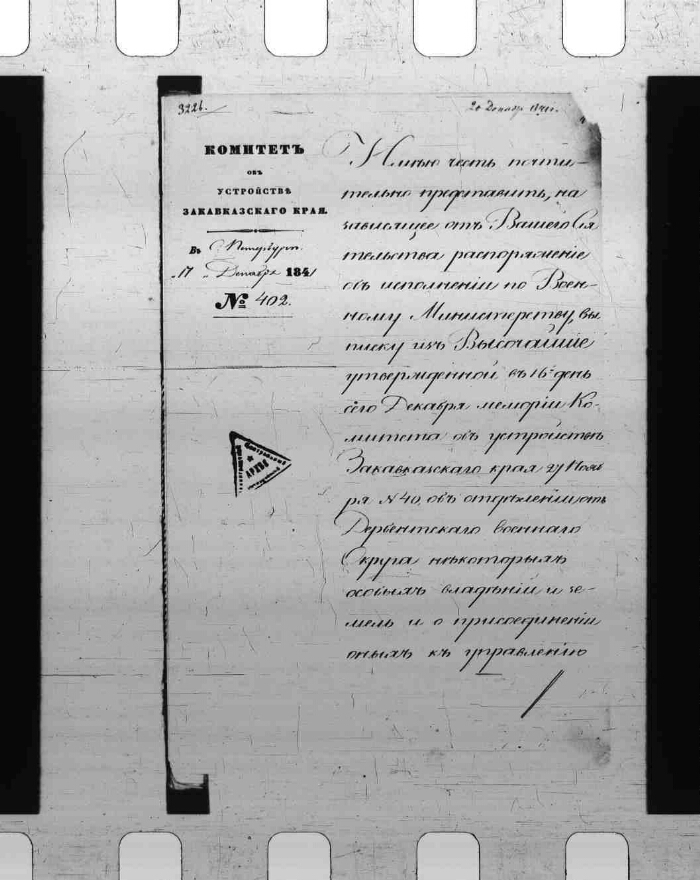 3226.
20 Декабр 1841.
КОМИТЕТЪ
ОБЪ
УСТРОЙСТВѢ
ЗАКАВКАЗСКАГО КРАЯ.
Въ С. Петербургѣ.
„17 „ Декабря 1841
№ 402.
Имѣю честь почти-
тельно представить, на
зависящее отъ Вашего Сія
тельства распоряженіе
объ исполненіи по Воен-
ному Министерству, вы
писку изъ Высочайше
утвержденной въ 16й день
сего Декабря меморіи Ко-
митета объ устройствѣ
Закавказскаго края 27 Нояб
ря N 40, объ отдѣленіи отъ
Дербентскаго военнаго
Округа нѣкоторыхъ
особыхъ владѣній и зе-
мель и о присоединеніи
оныхъ къ управленію
Центральный
АРХИВ